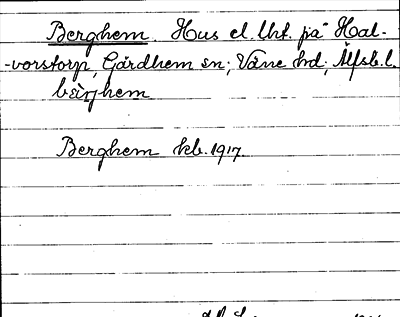 Berghem. Hus el. lht. på Hal-
-vorstorp, Gärdhem sn; Väne hd; Älfsb. l.
bärjhem
Berghem kb. 1917.